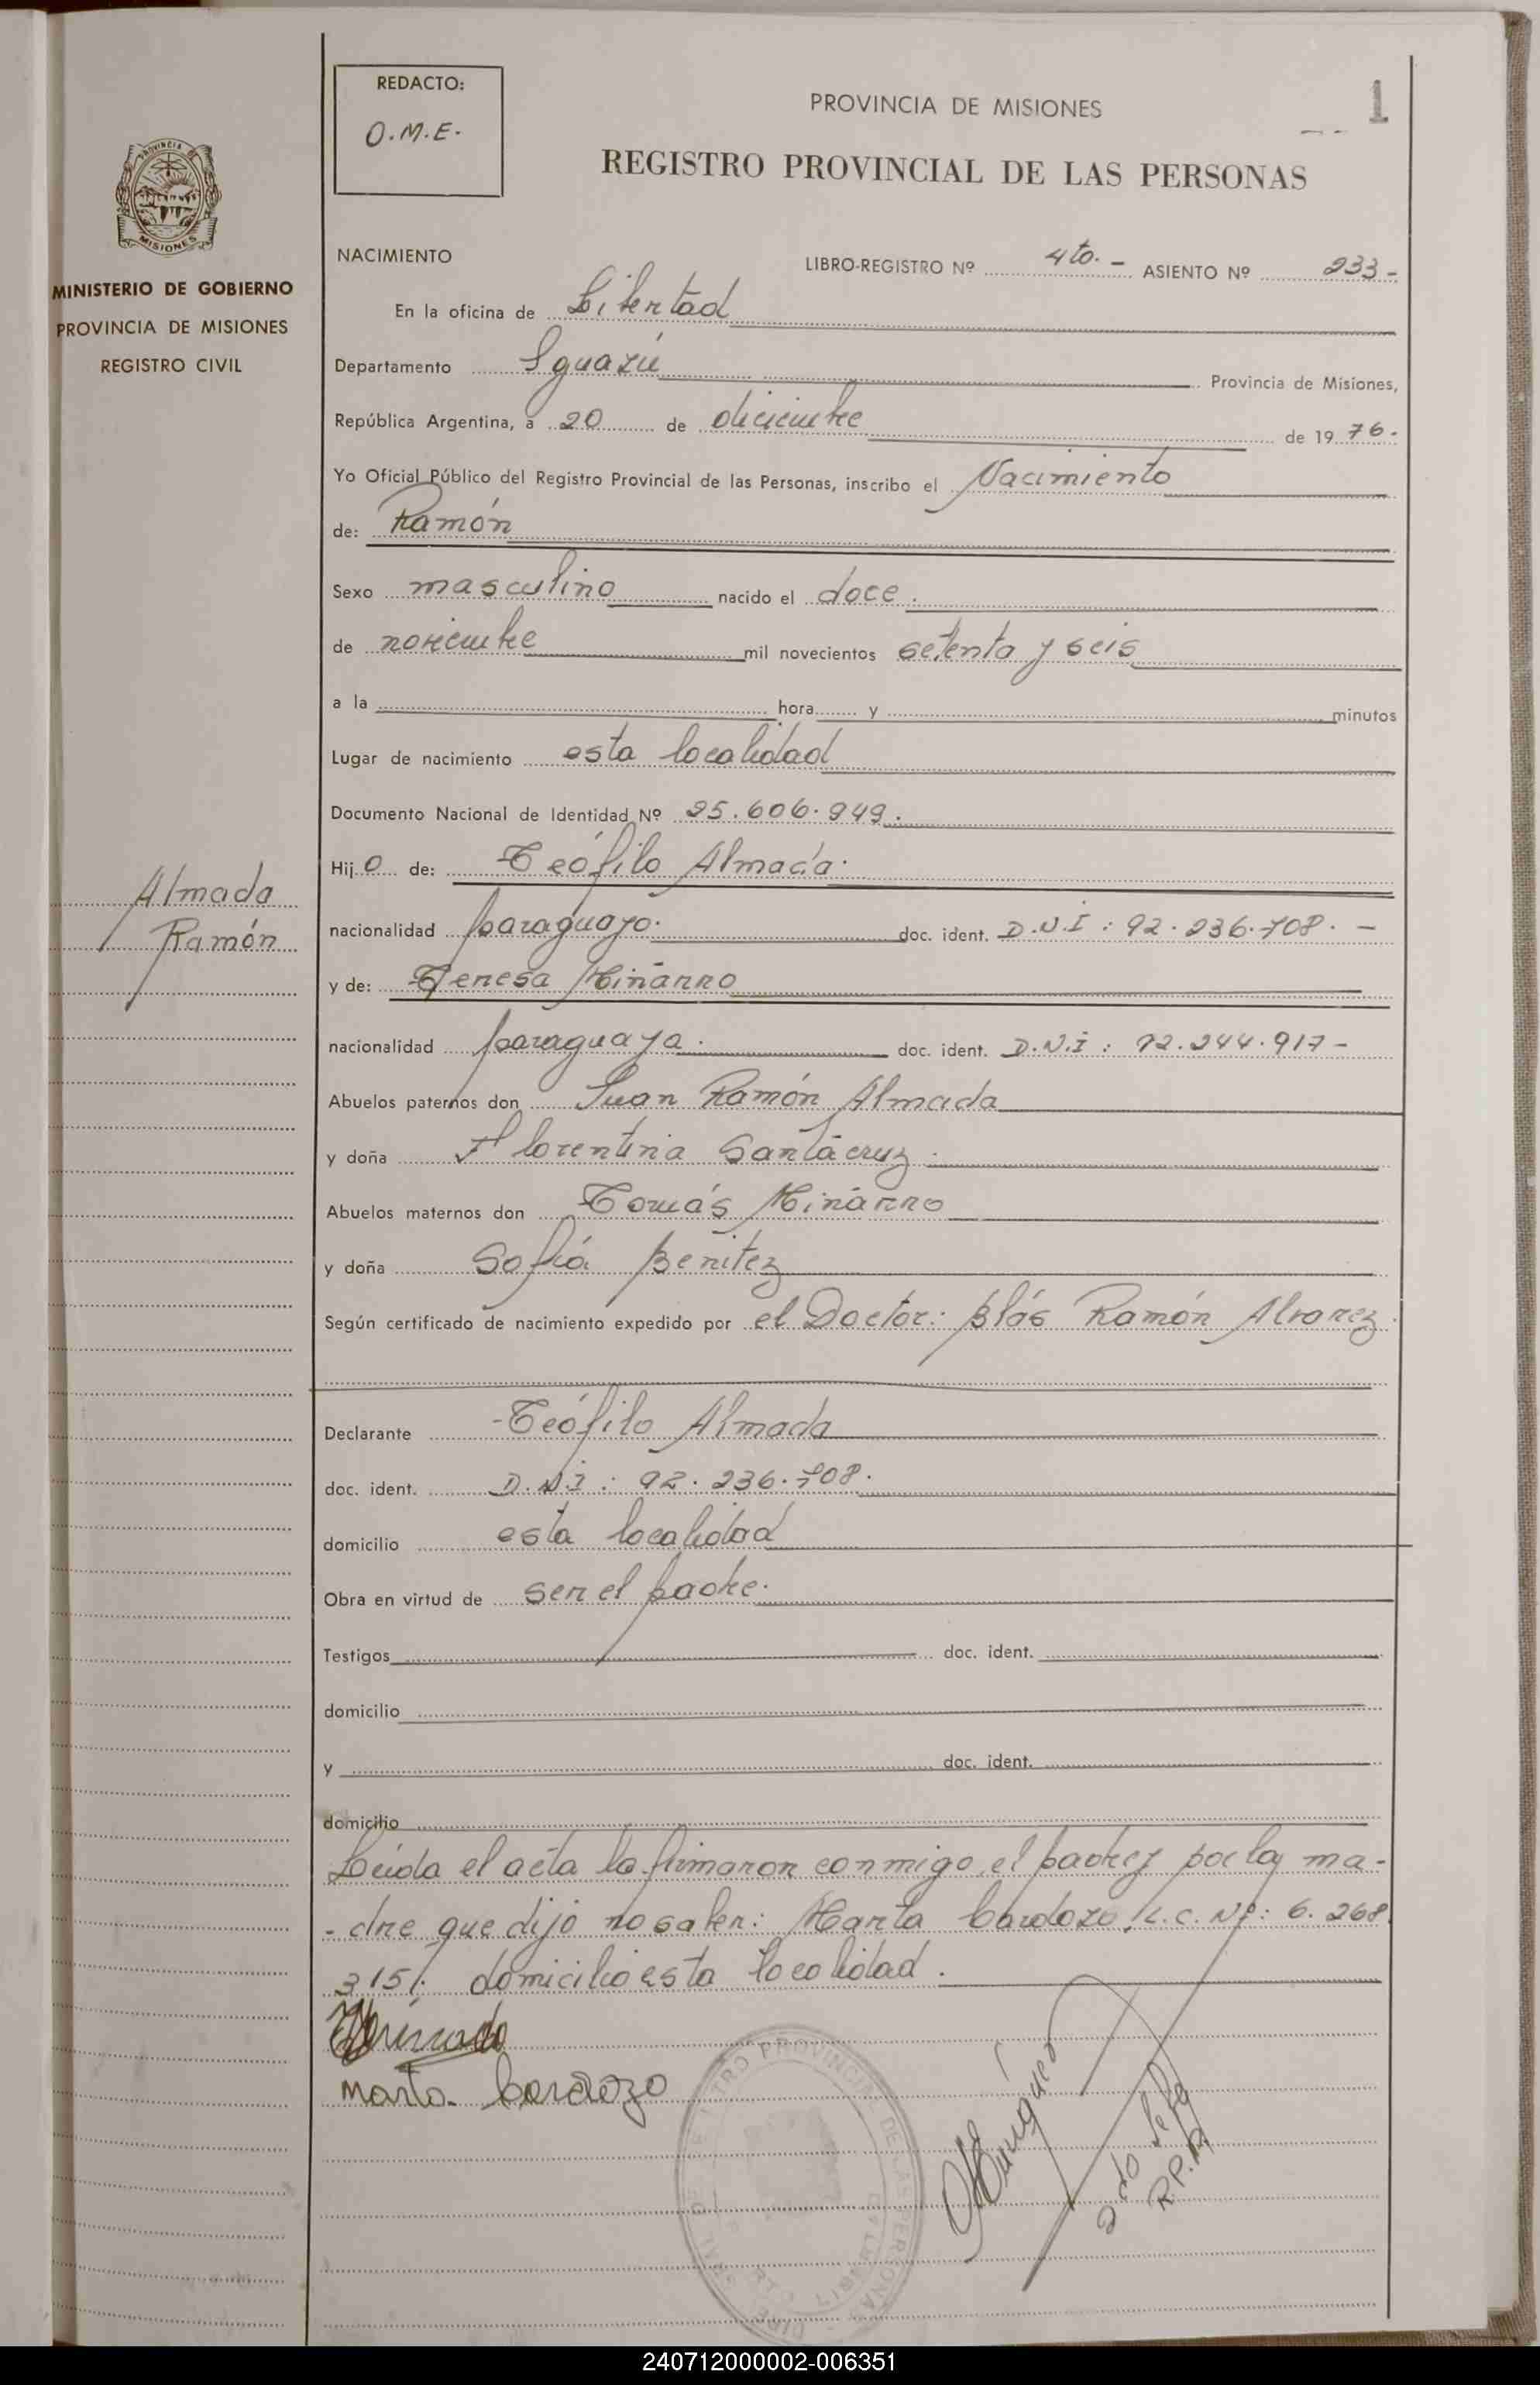 REDACTO:
O.M.E.
1
PROVINCIA DE MISIONES
REGISTRO PROVINCIAL DE LAS PERSONAS
PROVINCIA DE
MISIONES
MINISTERIO DE GOBIERNO
PROVINCIA DE MISIONES
REGISTRO CIVIL
NACIMIENTO
LIBRO-REGISTRO Nº 4to.- ASIENTO Nº 233-
En la oficina de Libertad
Departamento Iguazú Provincia de Misiones,
República Argentina, a 20 de diciembre de 1976.
Yo Oficial Público del Registro Provincial de las Personas, inscribo el Nacimiento
de: Ramón
Sexo masculino nacido el doce.
de noviembre mil novecientos setenta y seis
a la hora y minutos
Lugar de nacimiento esta localidad
Documento Nacional de Identidad Nº 25.606.949.
Hijo de: Teófilo Almada.
Almada
Ramón
nacionalidad paraguayo. doc. ident. D.N.I: 92.236.708.-
y de: Teresa Miñarro
nacionalidad paraguaya. doc. ident. D.N.I: 92.244.917-
Abuelos paternos don Juan Ramón Almada
y doña Florentina Santacruz.
Abuelos maternos don Tomás Miñarro
y doña Sofía Benitez
Según certificado de nacimiento expedido por el Doctor: Blás Ramón Alvarez.
Declarante -Teófilo Almada
doc. ident. D.N.I: 92.236.708.
domicilio esta localidad
Obra en virtud de ser el padre.
Testigos doc. ident.
domicilio
y doc. ident.
domicilio
Leida el acta la firmaron conmigo el padre y por la ma-
-dre que dijo no saber: Marta Cardozo L.C. Nº: 6.268
315/. domicilio esta localidad.
Marta Cardozo
2do Jefe
R.P.P.
240712000002-006351